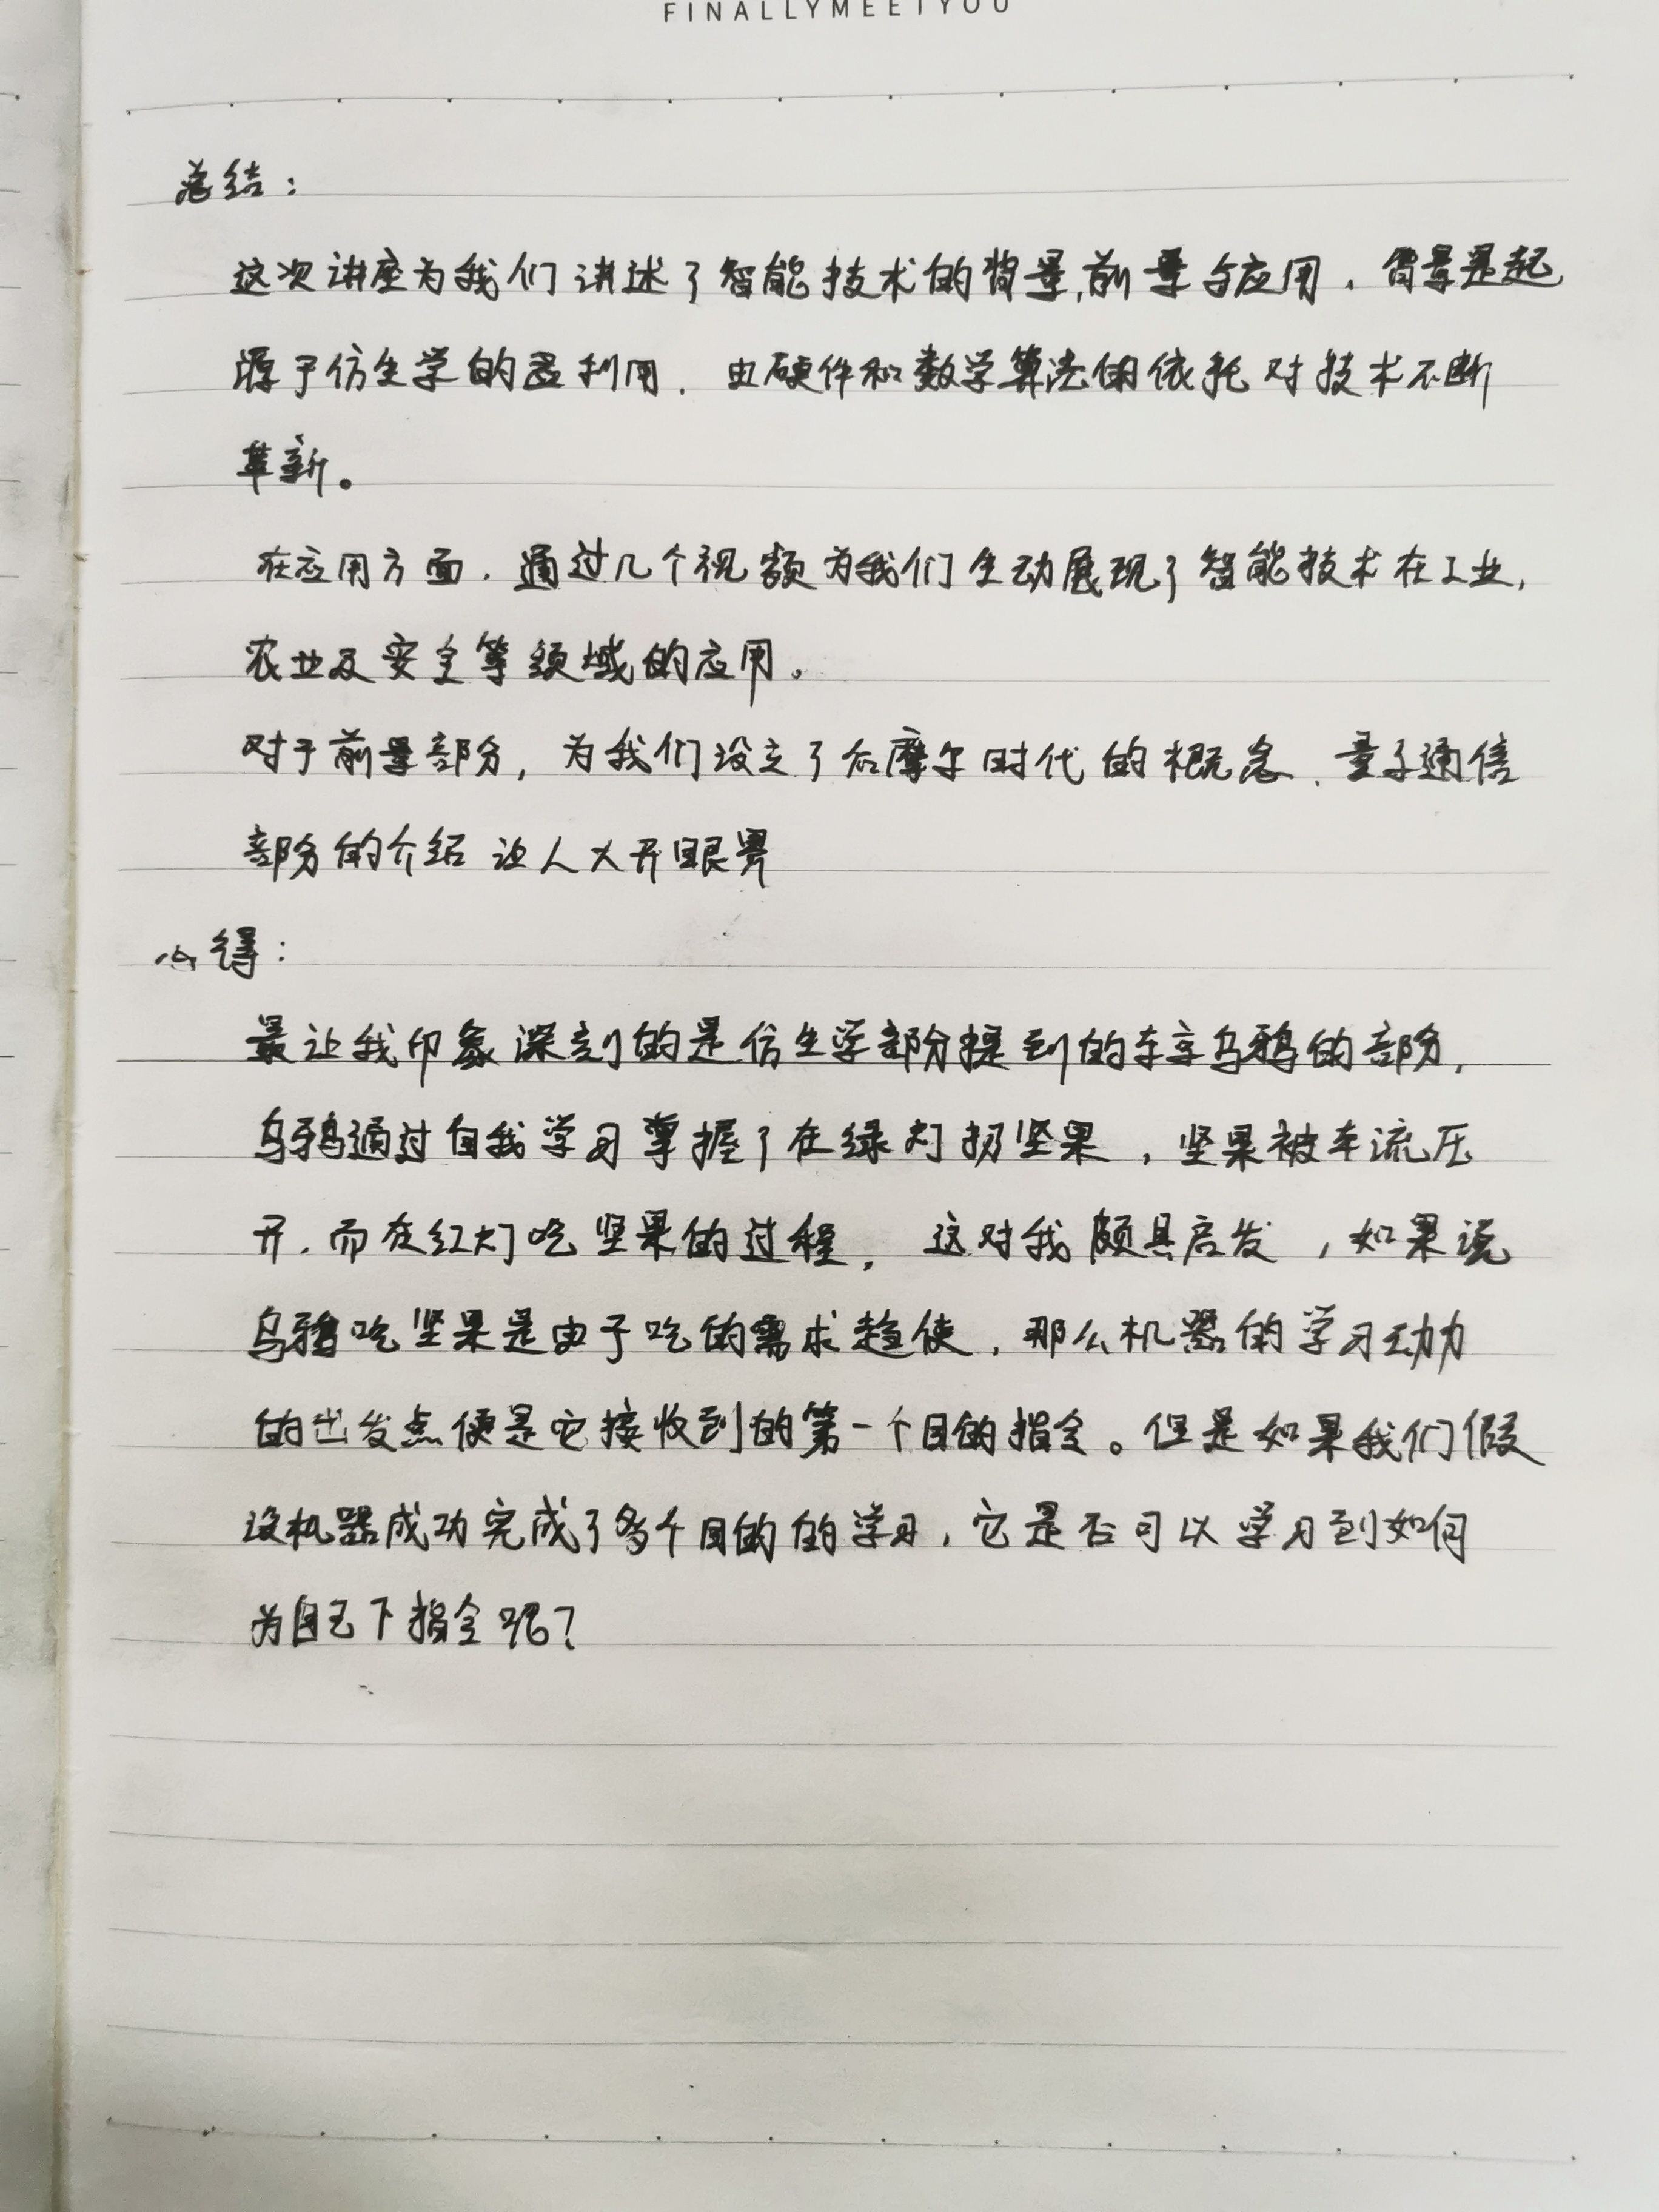 FINALLYMEETYOU
总结：
这次讲座为我们讲述了智能技术的背景,前景与应用，背景是起
源于仿生学的利用，由硬件和数学算法的依托对技术不断
革新。
在应用方面，通过几个视频为我们生动展现了智能技术在工业,
农业及安全等领域的应用。
对于前景部分，为我们设立了后摩尔时代的概念、量子通信
部分的介绍让人大开眼界
心得：
最让我印象深刻的是仿生学部分提到的东京乌鸦的部分,
乌鸦通过自我学习掌握了在绿灯扔坚果，坚果被车流压
开，而在红灯吃坚果的过程，这对我颇具启发，如果说
乌鸦吃坚果是由于吃的需求趋使，那么机器的学习动力
的出发点便是它接收到的第一个目的指令。但是如果我们假
设机器成功完成了多个目的的学习，它是否可以学习到如何
为自己下指令呢？